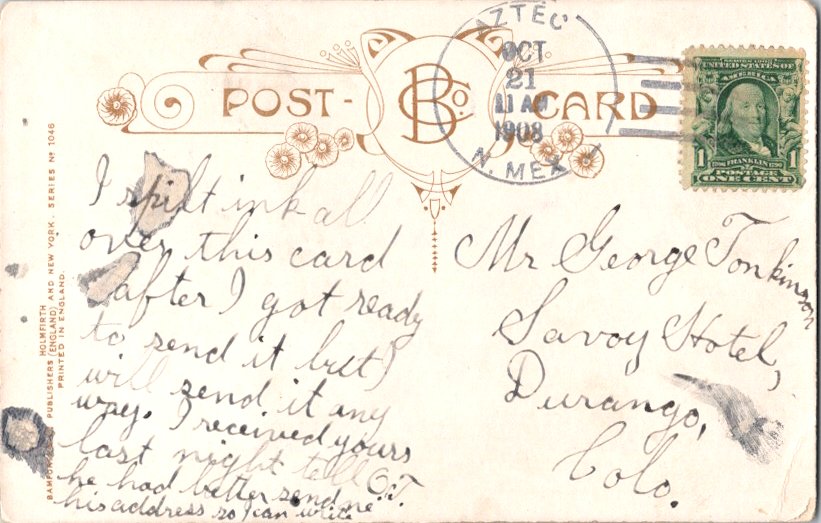 POST CARD
B Co.
AZTEC
OCT
21
11 AM
1908
N. MEX
SERIES 1902
UNITED STATES OF
AMERICA
1 FRANKLIN 1
POSTAGE
ONE CENT
I spilt ink all
over this card
after I got ready
to send it but I
will send it any
way. I received yours
last night tell O.T.
he had better send me
his address so I can write
Mr George Tonkinson
Savoy Hotel,
Durango,
Colo.
PUBLISHERS HOLMFIRTH (ENGLAND) AND NEW YORK. SERIES No 1046
PRINTED IN ENGLAND.